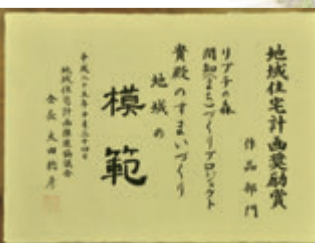 地域住宅計画奨励賞
作品部門
リブチの森
まちづくりプロジェクト
貴殿のすまいづくり
地域の
模範
平成二十五年十月二十四日
地域住宅計画推進協議会
会長